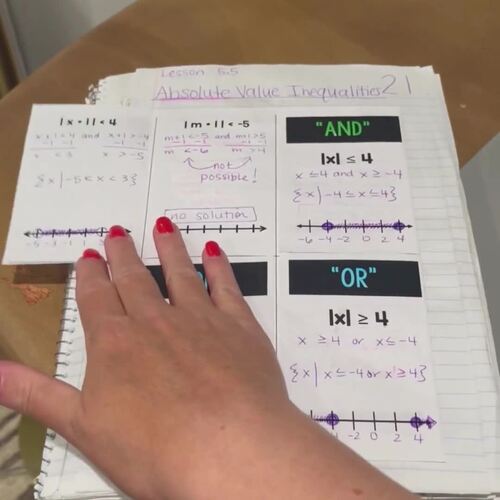 Lesson 5.5
Absolute Value Inequalities 21
|x + 1| < 4
x + 1 < 4 and x + 1 > -4
-1 -1 -1 -1
x < 3 x > -5
{x | -5 < x < 3}
-5 -3 -1 1
|m + 1| < -5
m+1 < -5 and m+1 > 5
-1 -1 -1 -1
m < -6 m > 4
not
possible!
no solution
"AND"
|x| ≤ 4
x ≤ 4 and x ≥ -4
{x | -4 ≤ x ≤ 4}
-6 -4 -2 0 2 4
"OR"
|x| ≥ 4
x ≥ 4 or x ≤ -4
{x | x ≤ -4 or x ≥ 4}
-2 0 2 4